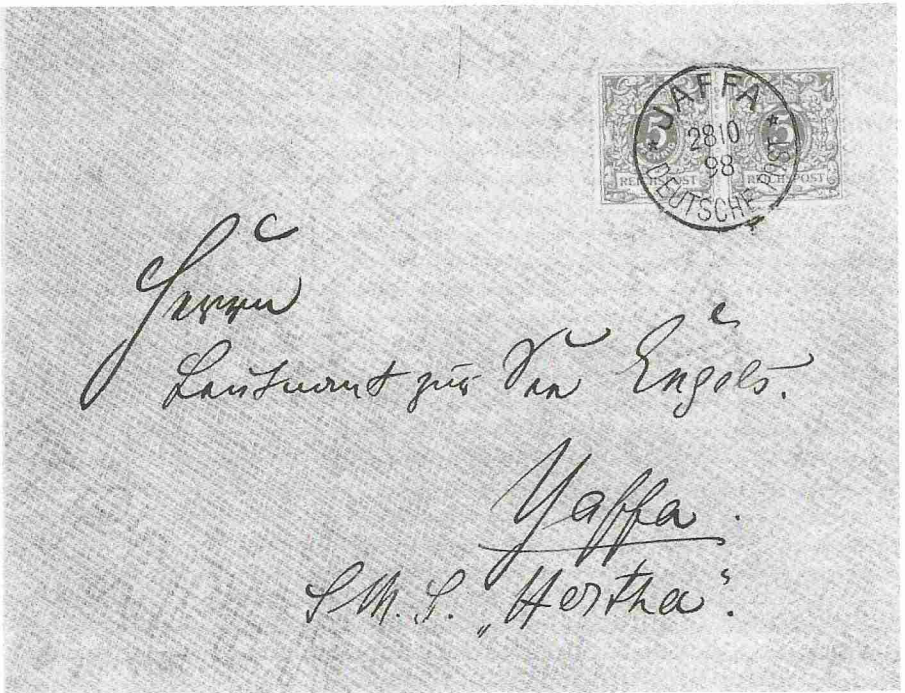 JAFFA
2810
98
* DEUTSCHE POST *
5 5
REICHSPOST REICHSPOST
Herrn
Leutnant zur See Engels.
Yaffa.
S.M.S. „Hertha“.